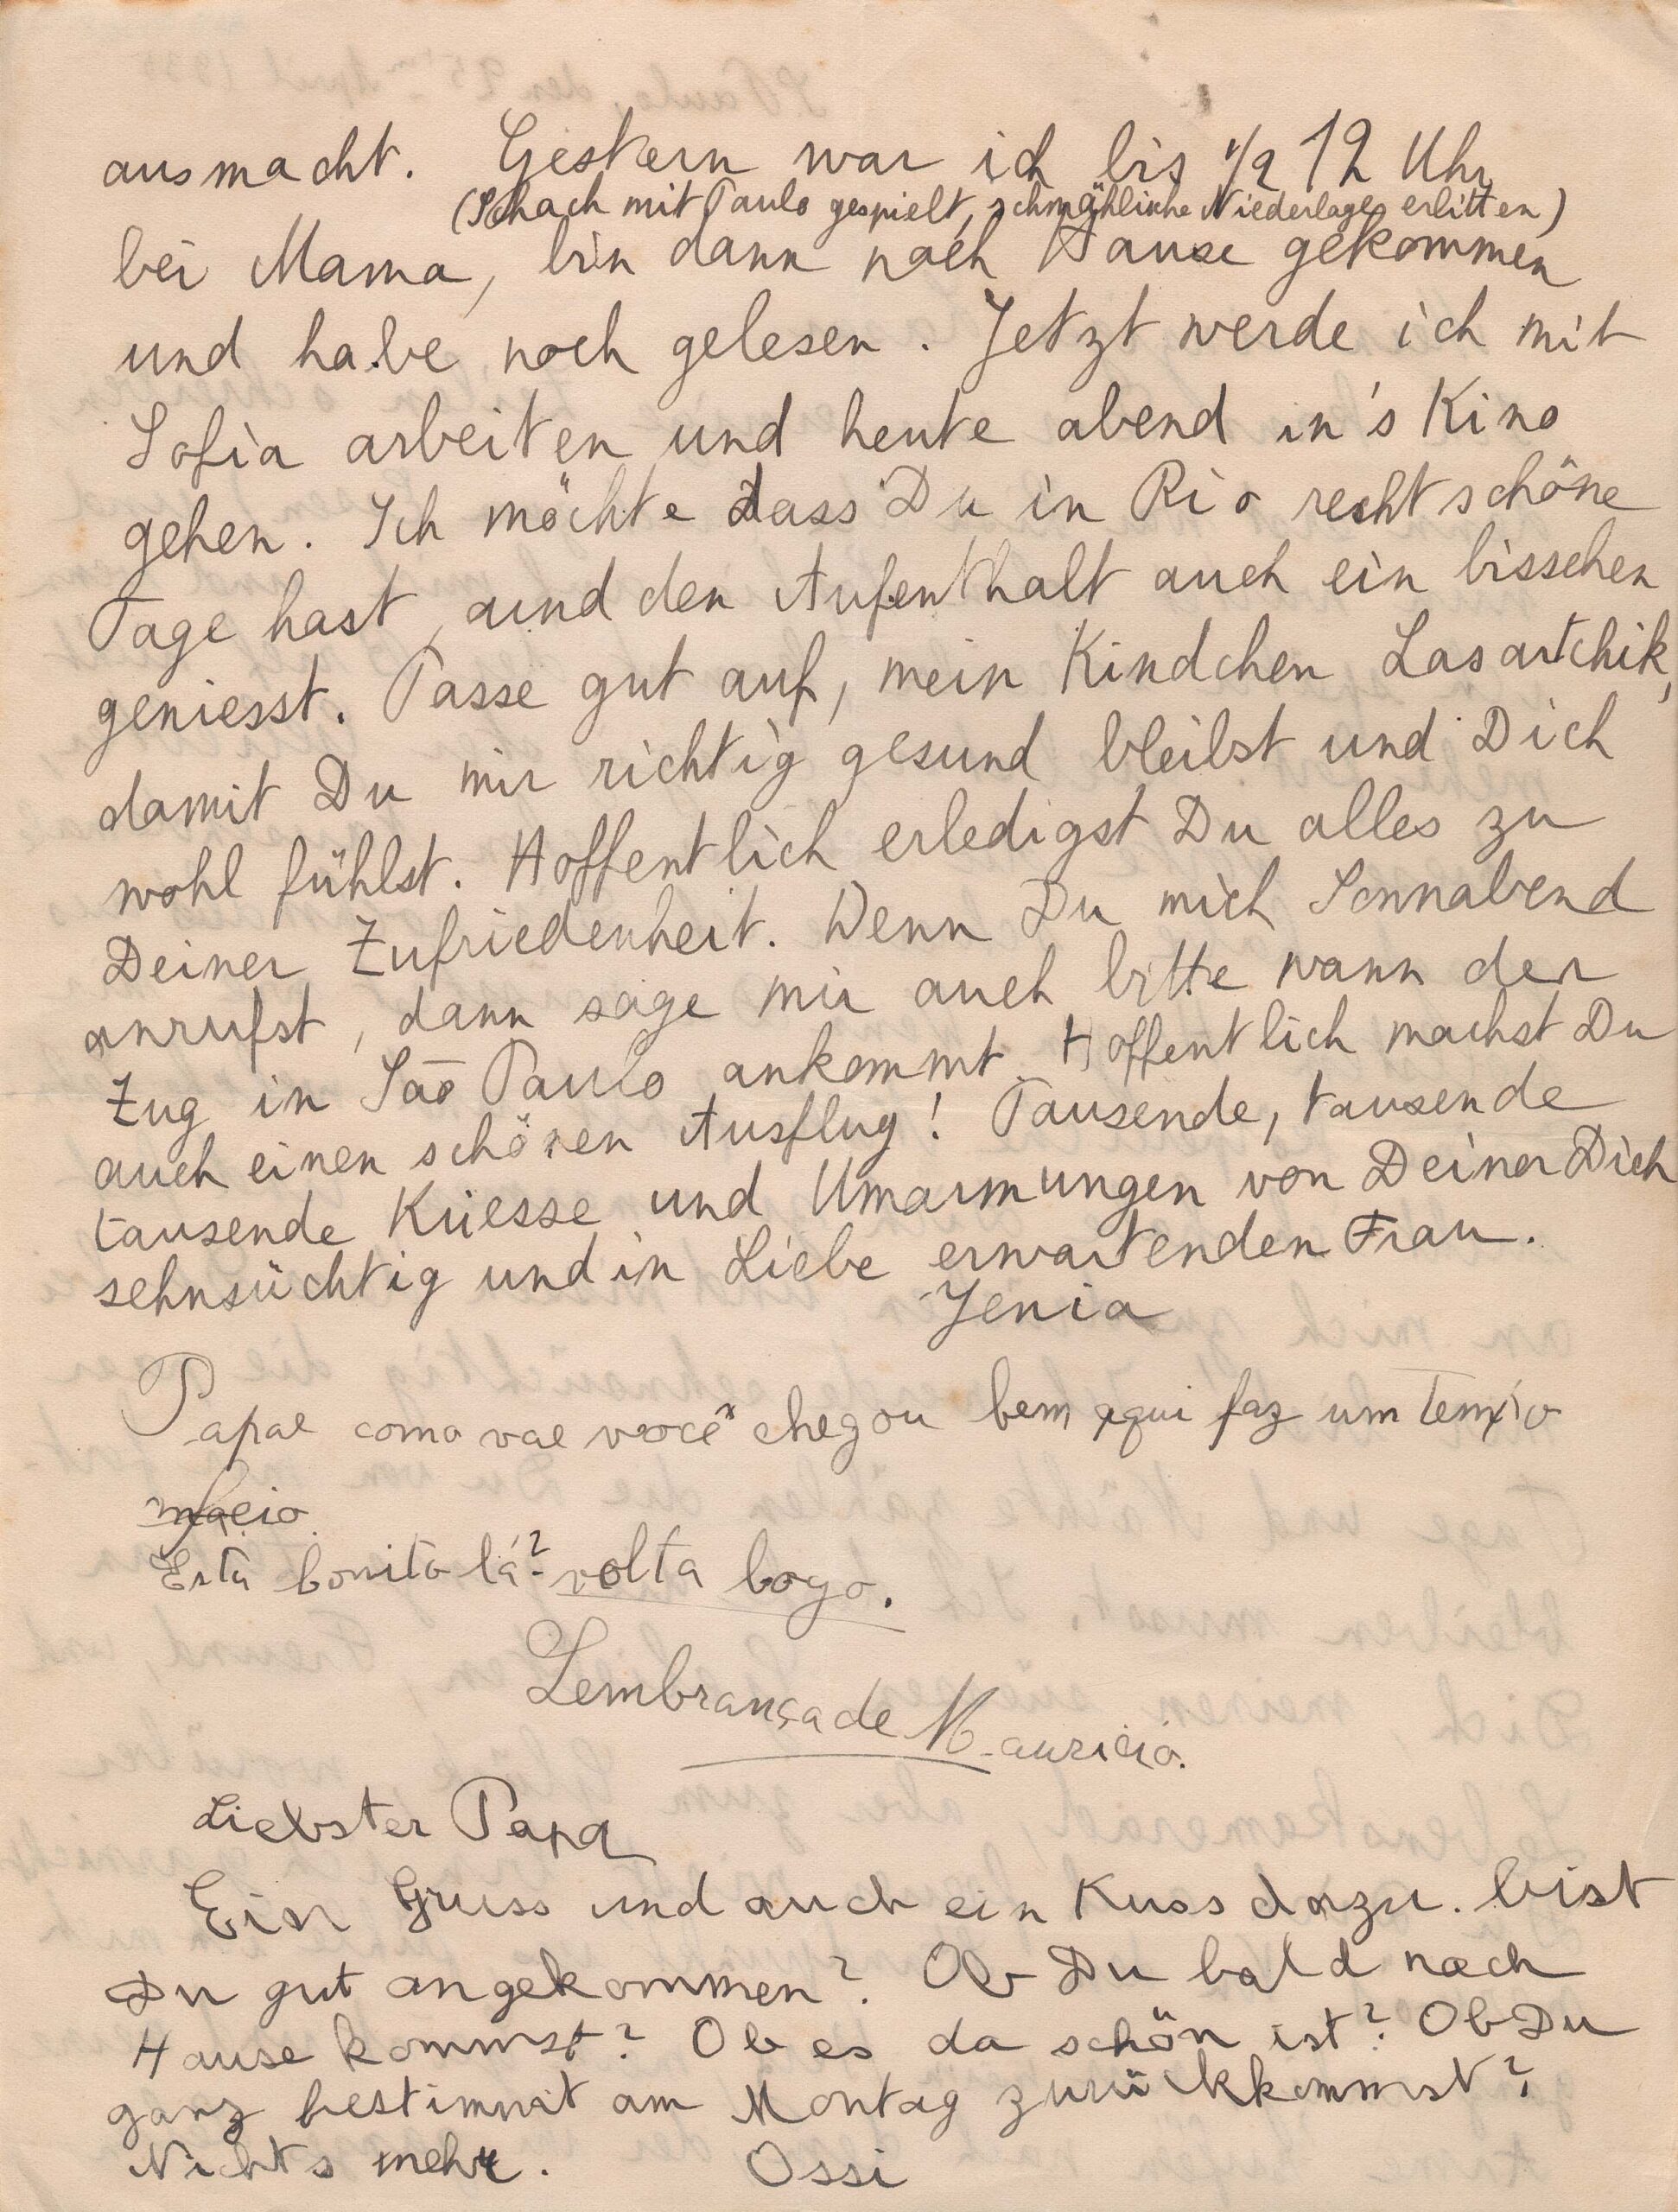 ausmacht. Gestern war ich bis 1/2 12 Uhr
(Schach mit Paulo gespielt, schmähliche Niederlage erlitten)
bei Mama, bin dann nach Hause gekommen
und habe noch gelesen. Jetzt werde ich mit
Sofia arbeiten und heute abend in's Kino
gehen. Ich möchte dass Du in Rio recht schöne
Tage hast, und den Aufenthalt auch ein bisschen
geniesst. Passe gut auf, mein Kindchen Lasartchik,
damit Du mir richtig gesund bleibst und Dich
wohl fühlst. Hoffentlich erledigst Du alles zu
Deiner Zufriedenheit. Wenn Du mich Sonnabend
anrufst, dann sage mir auch bitte wann der
Zug in São Paulo ankommt. Hoffentlich machst Du
auch einen schönen Ausflug! Tausende, tausende
tausende Küesse und Umarmungen von Deiner Dich
sehnsüchtig und in Liebe erwartenden Frau.
Jenia
Papae como vae você chegou bem aqui faz um tempo
Está bonito lá? volta logo.
Lembrança de Mauricio.
Liebster Papa
Ein Gruss und auch ein Kuss dazu. bist
Du gut angekommen? Ob Du bald nach
Hause kommst? Ob es da schön ist? Ob Du
ganz bestimmt am Montag zurückkommst?
Nichts mehr. Ossi